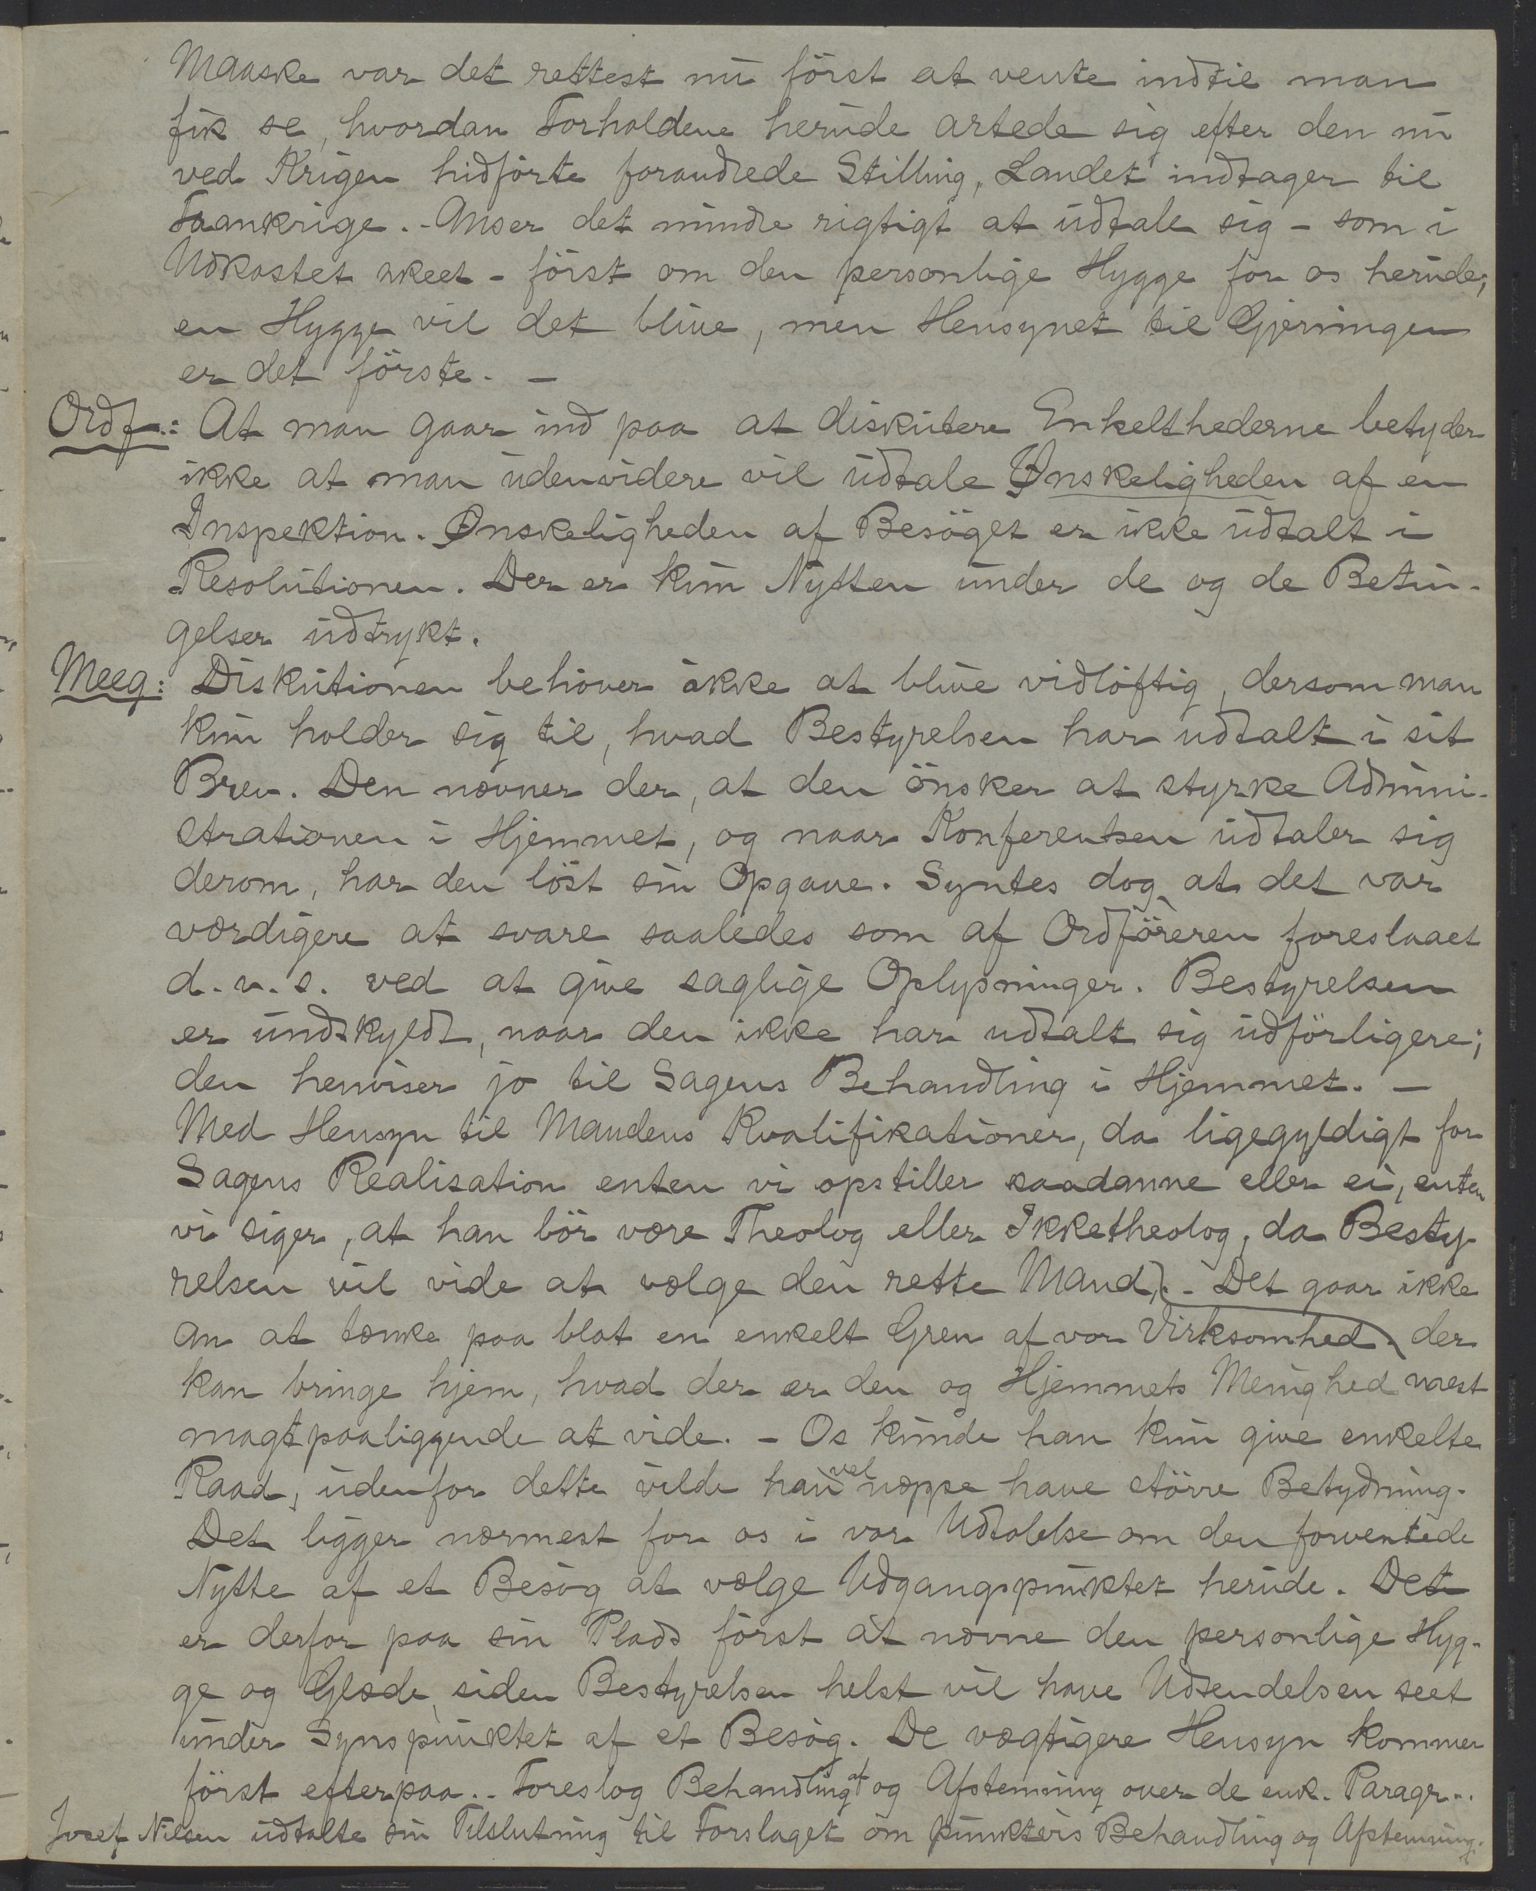 Maaske var det rettest nu först at vente indtil man
fik se, hvordan Forholdene herude artede sig efter den nu
ved Krigen hidförte forandrede Stilling, Landet indtager til
Frankrige. - Anser det mindre rigtigt at udtale sig - som i
Udkastet skeet - först om den personlige Hygge for os herude;
en Hygge vil det blive, men Hensynet til Gjerningen
er det förste. -
Ordf.: At man gaar ind paa at diskutere Enkelthederne betyder
ikke at man udenvidere vil udtale Ønskeligheden af en
Inspektion. Ønskeligheden af Besöget er ikke udtalt i
Resolutionen. Der er kun Nytten under de og de Betin-
gelser udtrykt.
Meeg: Diskutionen behöver ikke at blive vidlöftig, dersom man
kun holder sig til, hvad Bestyrelsen har udtalt i sit
Brev. Den nævner der, at den önsker at styrke Admini-
strationen i Hjemmet, og naar Konferentsen udtaler sig
derom, har den löst sin Opgave. Syntes dog, at det var
værdigere at svare saaledes som af Ordföreren foreslaaet
d.v.s. ved at give saglige Oplysninger. Bestyrelsen
er undskyldt, naar den ikke har udtalt sig udförligere;
den henviser jo til Sagens Behandling i Hjemmet. -
Med Hensyn til Mandens Kvalifikationer, da ligegyldigt for
Sagens Realisation enten vi opstiller saadanne eller ei, enten
vi siger, at han bör være Theolog eller Ikketheolog, da Besty-
relsen vil vide at vælge den rette Mand, - Det gaar ikke
an at tænke paa blot en enkelt Gren af vor Virksomhed. der
kan bringe hjem, hvad der er den og Hjemmets Menighed mest
magtpaaliggende at vide. - Os kunde han kun give enkelte
Raad, udenfor dette vilde han vel næppe have större Betydning.
Det ligger nærmest for os i vor Udtalelse om den forventede
Nytte af et Besög at vælge Udgangspunktet herude. Det
er derfor paa sin Plads först at nævne den personlige Hyg-
ge og Glæde, siden Bestyrelsen helst vil have Udsendelsen seet
under Synspunktet af et Besög. De vægtigere Hensyn kommer
först efterpaa. - Foreslog Behandling af og Afstemning over de enk. Paragr..
Josef Nilsen udtalte sin Tilslutning til Forslaget om punktvis Behandling og Afstemning.